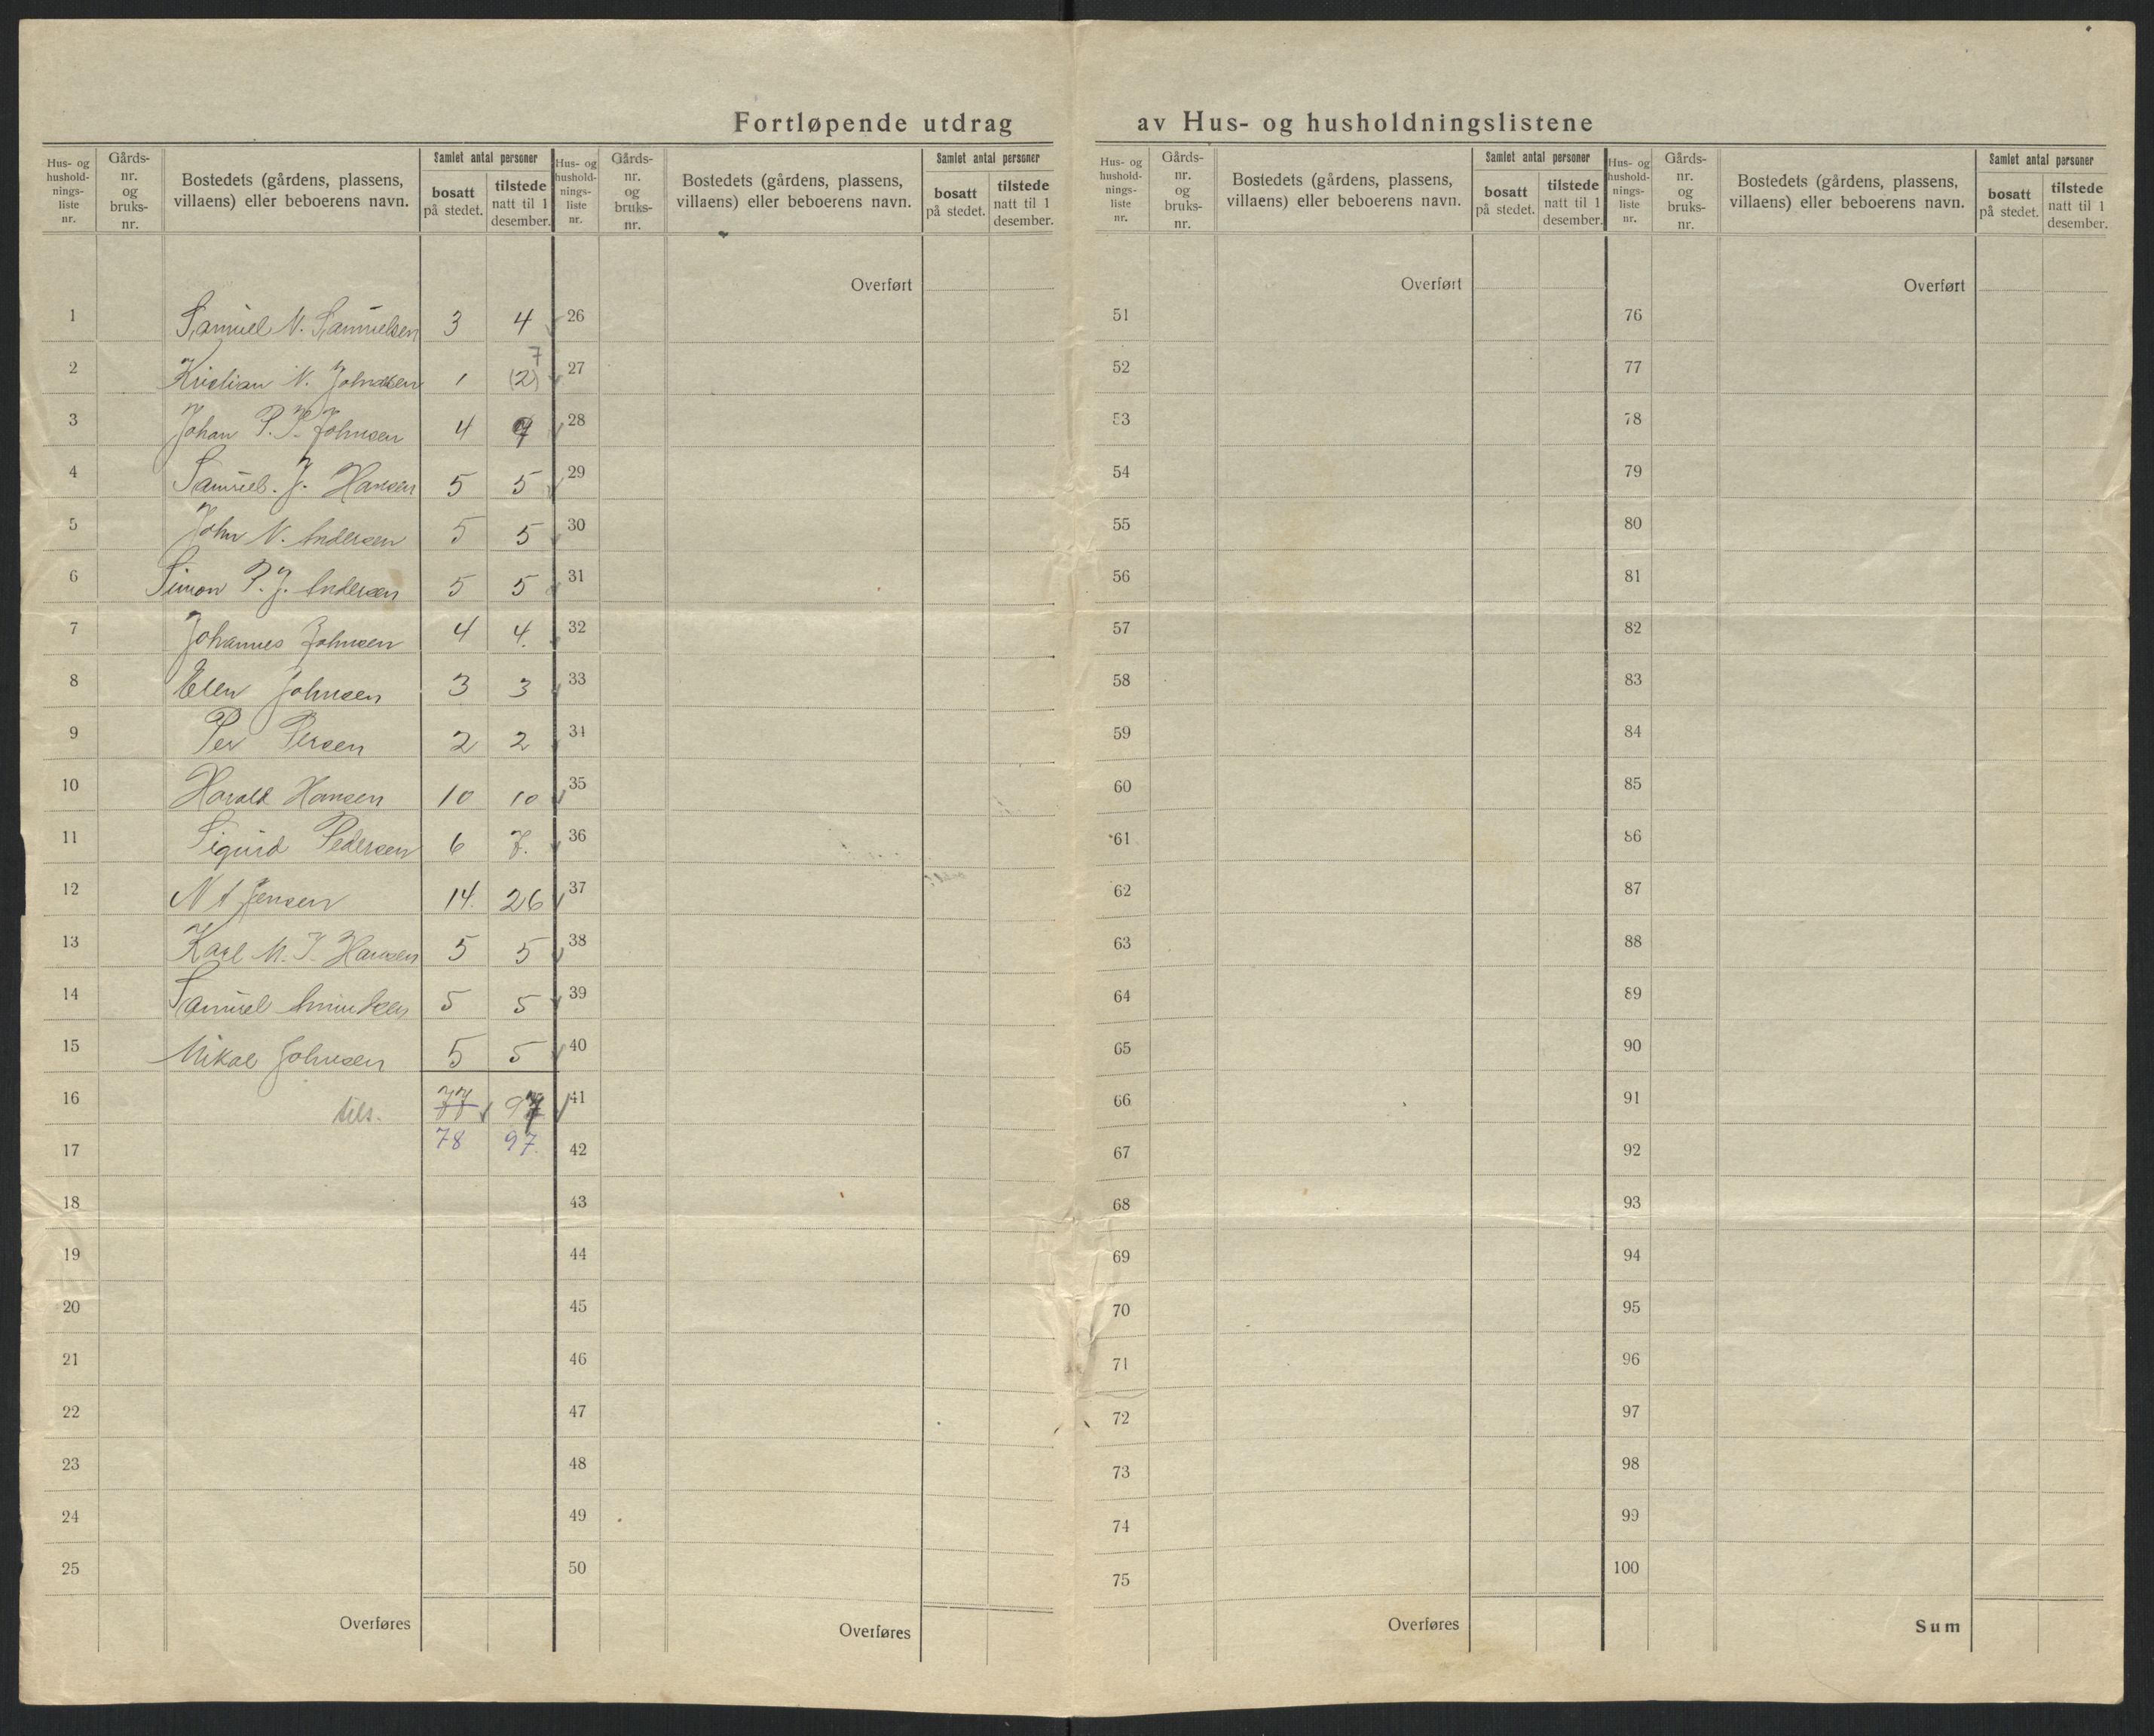 Fortløpende utdrag av Hus- og husholdningslistene
Hus- og hushold-nings-liste nr. Gårds-nr. og bruks-nr. Bostedets (gårdens, plassens, villaens) eller beboerens navn. Samlet antal personer bosatt på stedet. tilstede natt til 1 desember.
1 Samuel N. Samuelsen 3 4
2 Kristian N. Johnsen 1 (2) 7
3 Johan P. K. Johnsen 4 7
4 Samuel. J. Hansen 5 5
5 John N. Andersen 5 5
6 Simon P. J. Andersen 5 5
7 Johannes Johnsen 4 4.
8 Elen Johnsen 3 3
9 Per Persen 2 2
10 Harald Hansen 10 10
11 Sigurd Pedersen 6 7.
12 N A Jensen 14. 26
13 Karl M. J. Hansen 5 5
14 Samuel Amundsen 5 5
15 Mikal Johnsen 5 5
16 tils. 77 97
17 78 97.
18
19
20
21
22
23
24
25
Overføres
Hus- og hushold-nings-liste nr. Gårds-nr. og bruks-nr. Bostedets (gårdens, plassens, villaens) eller beboerens navn. Samlet antal personer bosatt på stedet. tilstede natt til 1 desember.
Overført
26
27
28
29
30
31
32
33
34
35
36
37
38
39
40
41
42
43
44
45
46
47
48
49
50
Overføres
Hus- og hushold-nings-liste nr. Gårds-nr. og bruks-nr. Bostedets (gårdens, plassens, villaens) eller beboerens navn. Samlet antal personer bosatt på stedet. tilstede natt til 1 desember.
Overført
51
52
53
54
55
56
57
58
59
60
61
62
63
64
65
66
67
68
69
70
71
72
73
74
75
Overføres
Hus- og hushold-nings-liste nr. Gårds-nr. og bruks-nr. Bostedets (gårdens, plassens, villaens) eller beboerens navn. Samlet antal personer bosatt på stedet. tilstede natt til 1 desember.
Overført
76
77
78
79
80
81
82
83
84
85
86
87
88
89
90
91
92
93
94
95
96
97
98
99
100
Sum